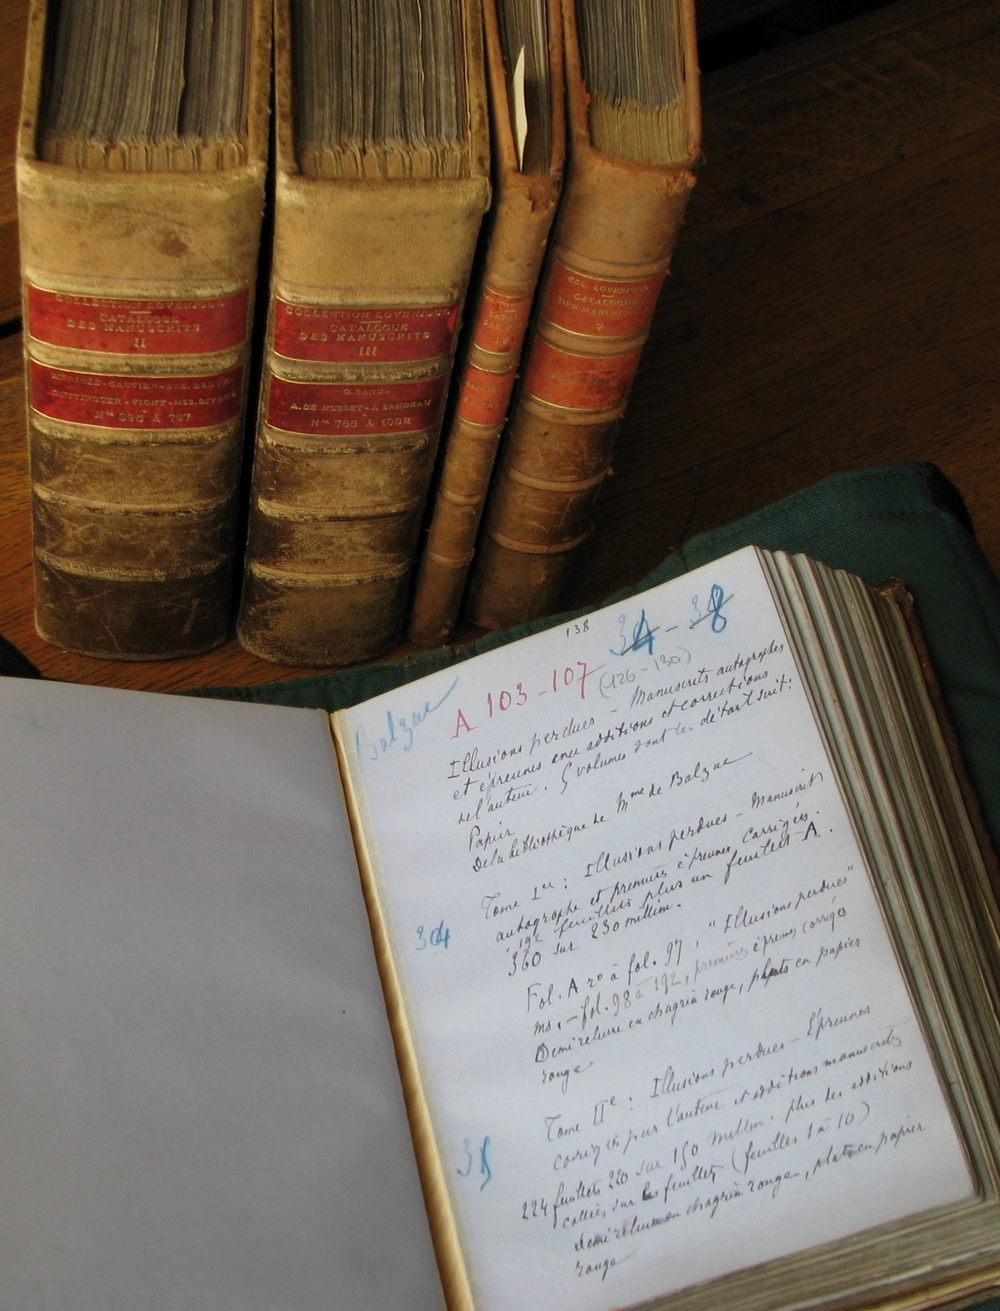 COLLECTION LOVENJOUL
CATALOGUE
DES MANUSCRITS
II
MÉRIMÉE-GAUTIER-STE. BEUVE
GUTTINGUER-VIGNY-MSS. DIVERS
Nos 395 À 767
COLLECTION LOVENJOUL
CATALOGUE
DES MANUSCRITS
III
G. SAND-
A. DE MUSSET-J. SANDEAU
Nos 768 À 1032
IV
COL. LOVENJOUL
CATALOGUE
DES MANUSCRITS
V
138
34-38
Balzac
A 103-107 (126-130)
Illusions perdues - Manuscrits autographes
et épreuves avec additions et corrections
de l'auteur. 5 volumes dont le détail suit:
Papier
De la bibliothèque de Mme de Balzac
Tome Ier: Illusions perdues - Manuscrit
autographe et premières épreuves corrigées.
192 feuillets plus un feuillet A.
360 sur 230 millim.
34
Fol. A ro à fol. 97, "Illusions perdues"
ms. - fol. 98 à 192, premières épreuves corrigées
Demi reliure en chagrin rouge, plats en papier
rouge
Tome IIe: Illusions perdues - Épreuves
corrigées par l'auteur et additions manuscrites
35
224 feuillets 220 sur 150 millim. plus des additions
collées sur les feuillets (feuilles 1 à 10)
Demi reliure en chagrin rouge, plats en papier
rouge